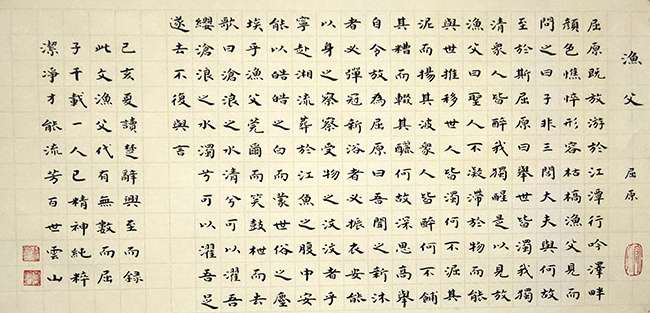 漁父 屈原
屈原既放游於江潭行吟澤畔
顏色憔悴形容枯槁漁父見而
問之曰子非三閭大夫與何故
至於斯屈原曰舉世皆濁我獨
清衆人皆醉我獨醒是以見放
漁父曰聖人不凝滯於物而能
與世推移世人皆濁何不淈其
泥而揚其波衆人皆醉何不餔
其糟而歠其醨何故深思高舉
自令放為屈原曰吾聞之新沐
者必彈冠新浴者必振衣安能
以身之察察受物之汶汶者乎
寧赴湘流葬於江魚之腹中安
能以皓皓之白而蒙世俗之塵
埃乎漁父莞爾而笑鼓枻而去
歌曰滄浪之水清兮可以濯吾
纓滄浪之水濁兮可以濯吾足
遂去不復與言
己亥夏讀楚辭興至而錄
此文漁父代有無數而屈
子千載一人已精神純粹
潔淨才能流芳百世雲山